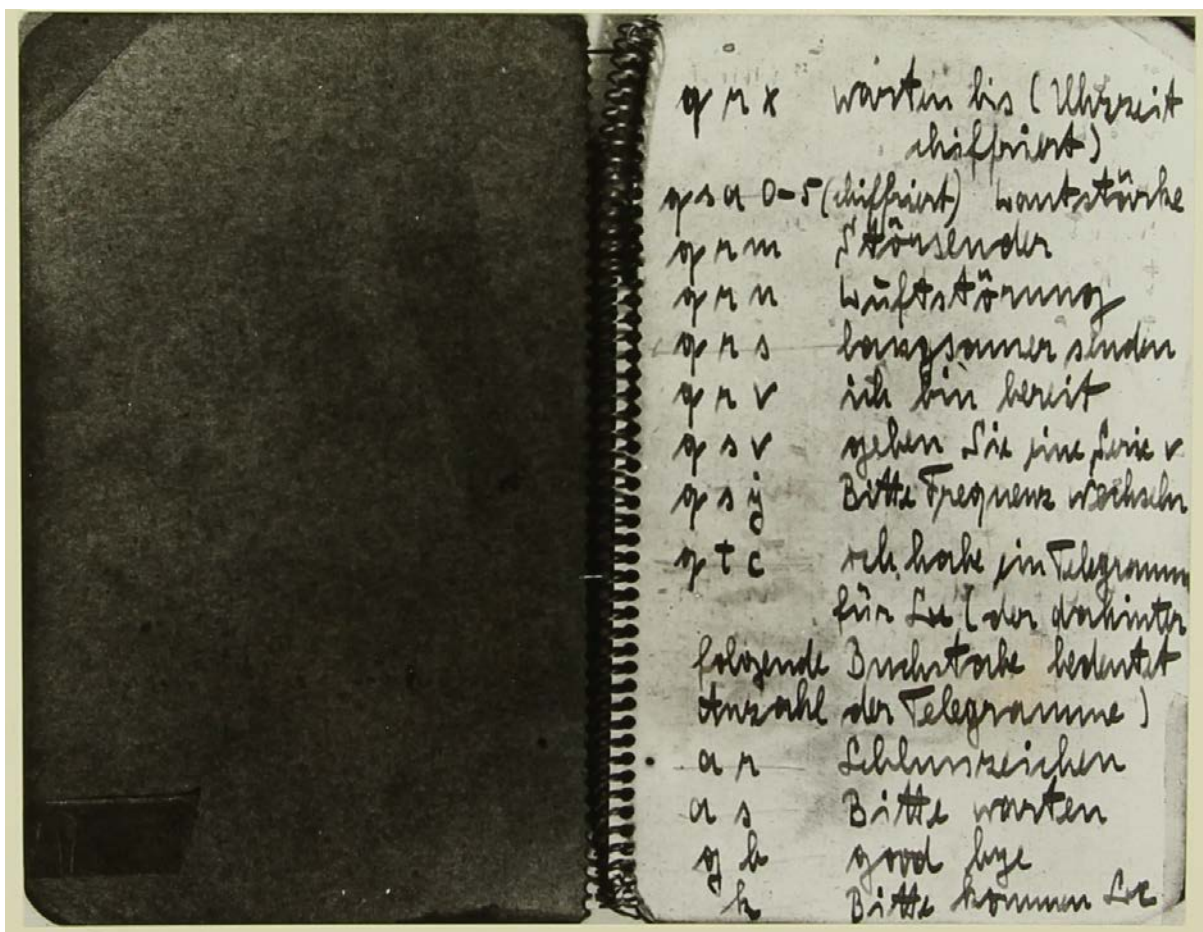 q r x warten bis (Uhrzeit
chiffriert)
q s a 0-5 (chiffriert) Lautstärke
q r m Störsender
q r n Luftstörung
q r s langsamer senden
q r v ich bin bereit
q s v geben Sie eine Serie v
q s y Bitte Frequenz wechseln
q t c ich habe ein Telegramm
für Sie (der dahinter
folgende Buchstabe bedeutet
Anzahl der Telegramme)
a r Schlusszeichen
a s Bitte warten
g b good bye
k Bitte kommen Sie